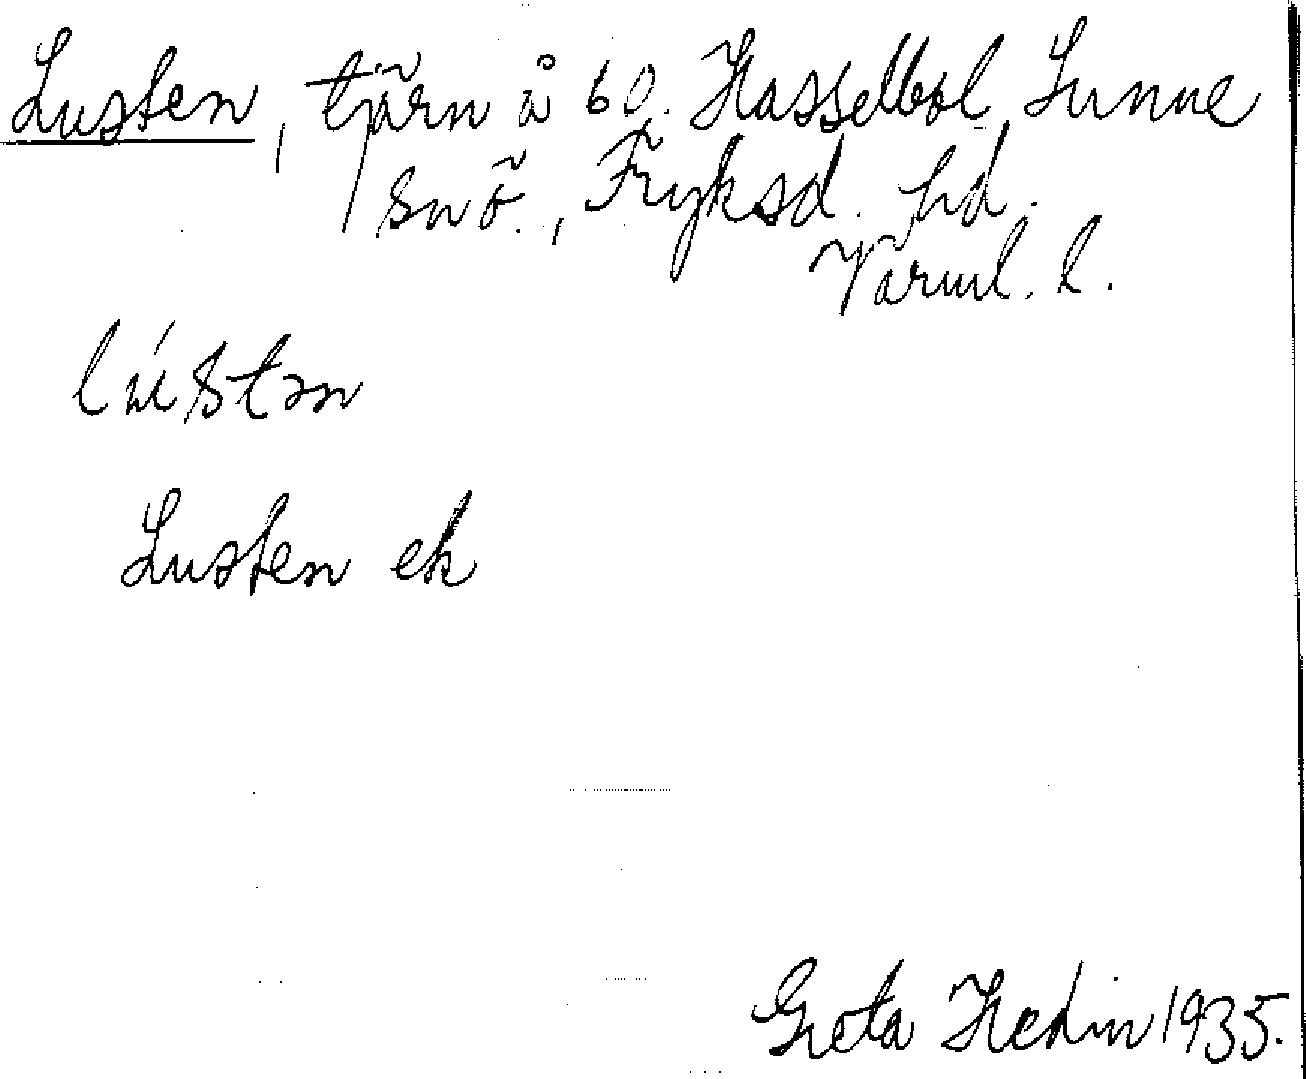 Lusten, tjärn å bd. Hasselbol, Sunne
snö., Fryksd. hd.
Värml. l.
lústən
Lusten ek
Greta Hedin 1935.